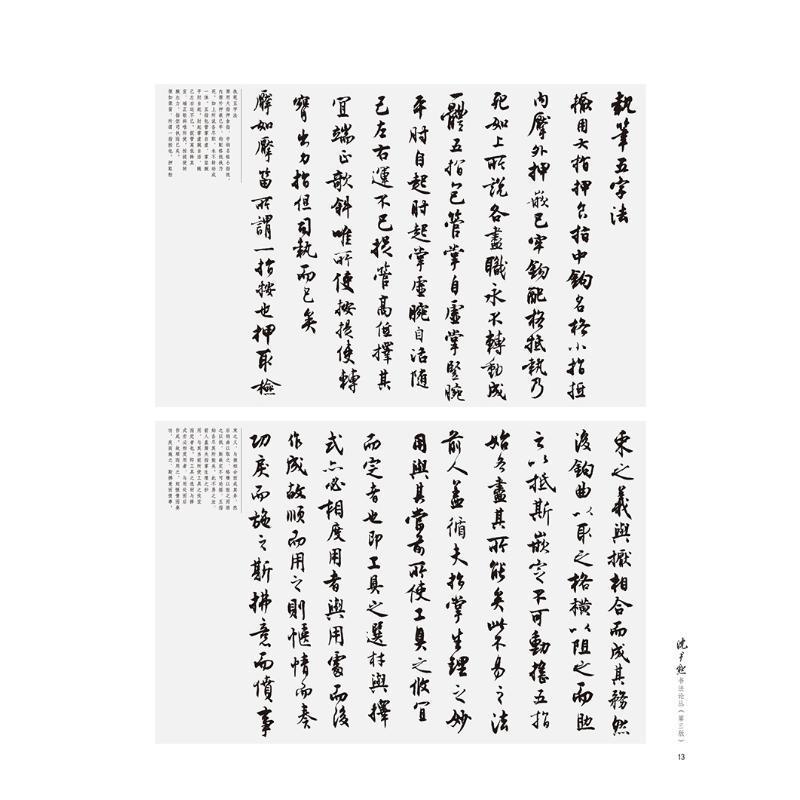 執筆五字法
擫用大指押食指中鉤名格小指抵
內擫外押嵌已牢鉤配格抵執乃
死如上所說各盡職永不轉動成
一體五指包管掌自虛掌豎腕
平肘自起肘起掌虛腕自活隨
己左右運不已提管高低擇其
宜端正欹斜唯所使按提使轉
腕出力指但司執而已矣
擫如擫笛所謂一指按也押取檢
束之義與擫相合而成其務然
後鉤曲以取之格橫以阻之而助
之以抵斯嵌定不可動搖五指
始各盡其所能矣此不易之法
前人蓋循夫指掌生理之妙
用與其當前所使工具之攸宜
而定者也即工具之選材與擇
式亦必相度用者與用處而後
作成故順而用之則愜情而奏
功戾而施之斯拂意而僨事
沈尹默
书法论丛（第三版）
13